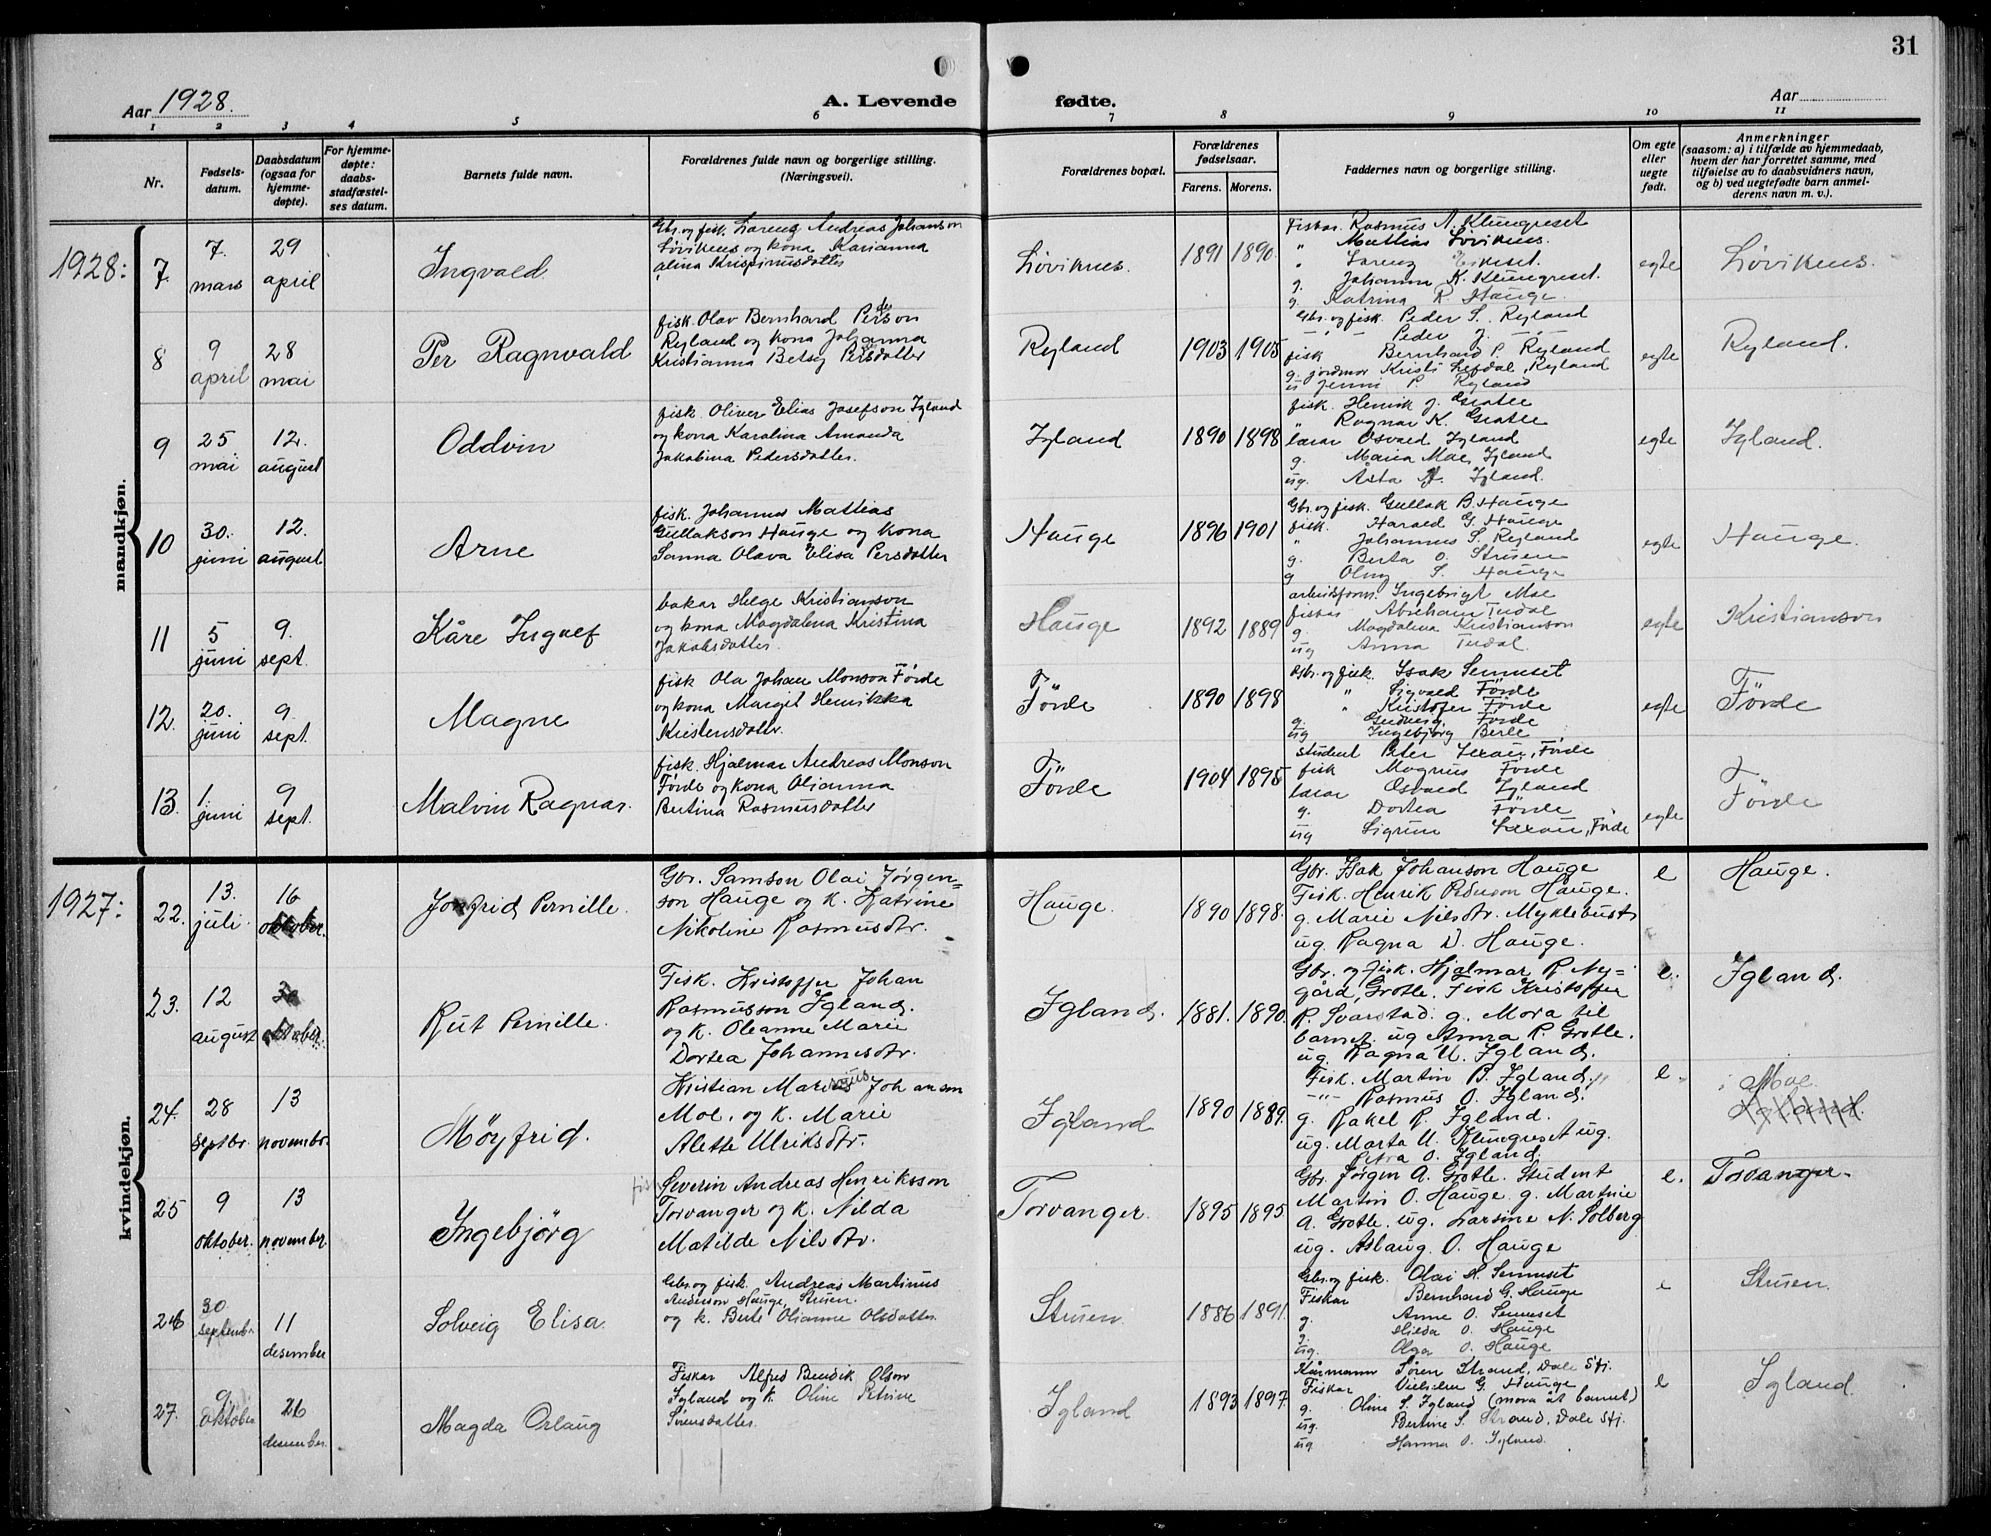 31
Aar 1928.
A. Levende fødte.
Aar
1 2 3 4 5 6 7 8 9 10 11
Nr.
Fødsels-
datum.
Daabsdatum
(ogsaa for
hjemme-
døpte).
For hjemme-
døpte:
daabs-
stadfæstel-
ses datum.
Barnets fulde navn.
Forældrenes fulde navn og borgerlige stilling.
(Næringsvei).
Forældrenes bopæl.
Forældrenes
fødselsaar.
Farens. Morens.
Faddernes navn og borgerlige stilling.
Om egte
eller
uegte
født.
Anmerkninger
(saasom: a) i tilfælde av hjemmedaab,
hvem der har forrettet samme, med
tilføielse av to daabsvidners navn,
og b) ved uegtefødte barn anmel-
derens navn m. v.).
mandkjøn.
1928:
7. 7. mars 29 april
Ingvald
Gbr. og fisk. Lorens Andreas Johanson
Lövikens og kona Karianna
Alina Krispinusdotter
Lövikens. 1891 1890.
Fiskar Rasmus A. Klungreset
" Mattias Lövikens.
" Lorenz
g. Johanna K. Klungreset.
g. Katrina R. Hauge.
egte Lövikens.
8 9 april 28 mai
Per Ragnvald
fisk. Olav Bernhard Person
Ryland og kona Johanna
Kristianna Betsy Persdotter
Ryland 1903 1905
Gbr. og fisk. Peder S. Ryland
-"- Peder J. -"-
fisk Bernhard P. Ryland
g. jordmor Kristi Lefdal, Ryland
ug Jenni P. Ryland
egte Ryland.
9 25 mai 12. august
Oddvin
fisk. Oliver Elias Josefson Igland
og kona Karolina Amanda
Jakobina Pedersdotter.
Igland 1890 1898
fisk. Henrik J. Grotle
" Ragnar K. Grotle
lærar Osvald Igland
g. Maria Moe, Igland
ug. Åsta Igland.
egte Igland.
10 30. juni 12. august
Arne
fisk. Johannes Mattias
Gullakson Hauge og kona
Sanna Olava Elisa Persdotter
Hauge 1896 1901
Gbr. og fisk. Gullak B. Hauge
fisk. Harald G. Hauge
" Johannes S. Ryland
g. Berta O. Struen
g Olny S. Hauge
egte Hauge.
11 5 juni 9. sept.
Kåre Ingulf
bakar Helge Kristianson
og kona Magdalena Kristina
Jakobsdotter.
Hauge 1892 1889
arbeidsform. Ingebrigt Moe
fiskar Abraham Tudal
g. Magdalena Kristianson
ug Anna Tudal.
egte Kristianson
12. 20. juni 9. sept.
Magne
fisk Ola Johan Monson Förde
og kona Margit Henrikka
Kristensdotter.
Förde 1890 1898
Gbr. og fisk. Isak Senneset
" Sigvald Förde
" Kristofer Förde
g. Gudveig Förde
ug Ingebjørg Berle
egte Förde
13. 1. juni 9 sept.
Malvin Ragnar.
fisk. Hjalmar Andreas Monson
Förde og kona Olianna
Bertina Rasmusdotter
Förde 1904 1895
student Peter Lexau, Förde
fisk Magnus Förde
lærar Osvald Igland
g. Dortea Förde
ug Sigrun Lexau, Förde
egte Förde
kvindekjøn.
1927:
22. 13. juli 16 oktober.
Jonfrid Pernille.
Gbr. Samson Olai Jörgen=
son Hauge og k. Katrine
Nikoline Rasmusdtr.
Hauge. 1890 1898.
Gbr. Isak Johanson Hauge
Fisk. Henrik Pederson Hauge.
g. Marie Nilsdtr. Myklebust
ug. Ragna D. Hauge.
e Hauge.
23. 12 august 30 oktober.
Rut Pernille.
Fisk. Kristoffer Johan
Rasmusson Igland.
og k. Oleanne Marie
Dortea Johannesdtr.
Igland. 1881. 1890.
Gbr. og fisk. Hjalmar R. Ny=
gård, Grotle. Fisk Kristoffer
R. Svarstad. g. Mora til
barnet. ug Anna R. Grotle.
ug. Ragna U. Igland.
e. Igland.
24. 28 septbr. 13 novembr.
Möyfrid.
Kristian Marius Johanson
Moe, og k. Marie
Alette Ulriksdtr.
Igland 1890 1889.
Fisk. Martin B. Igland.
-"- Rasmus O. Igland.
g. Rakel R. Igland.
ug. Marta U. Klungreset ug.
Petra O. Igland.
e. Moe
Igland.
25 9 oktober. 13 november.
Ingebjörg
fisk Severin Andreas Henriksson
Torvanger og k. Nilda
Matilde Nilsdtr.
Torvanger. 1895 1895
Gbr. Jörgen A. Grotle. Student
Martin O. Hauge g. Martine
A. Grotle. ug. Larsine N. Solberg
ug. Aslaug O. Hauge
e. Torvanger.
26 30. septembr. 11 desember
Solveig Elisa.
Gbr. og fisk. Andreas Martinus
Anderson Hauge, Struen.
og k. Berte Olianne Olsdotter.
Struen. 1886 1891.
Gbr. og fisk. Olai H. Senneset
Fiskar Bernhard G. Hauge
g. Anne O. Sennset
g. Hilda O. Hauge
ug. Olga O. Hauge
e Struen.
27. 9. oktober 26 desember.
Magda Orlaug
Fiskar Alfred Bendik Olson
Igland og k. Oline Petrine
Sörensdotter.
Igland 1893 1897.
Kårmann Sören Strand, Dale Stj.
Fiskar Vilhelm G. Hauge
g. Oline S. Igland (mora åt barnet)
ug. Bertine S. Strand, Dale Stj.
ug Hanna O. Igland.
e Igland.